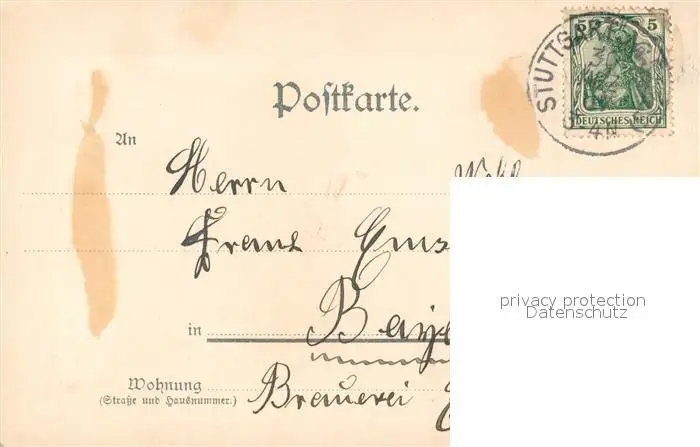 5 5
STUTTGART
DEUTSCHES REICH
4N
Postkarte.
An
Herrn
Franz
privacy protection
Datenschutz
in
Wohnung
(Straße und Hausnummer.)
Brauerei